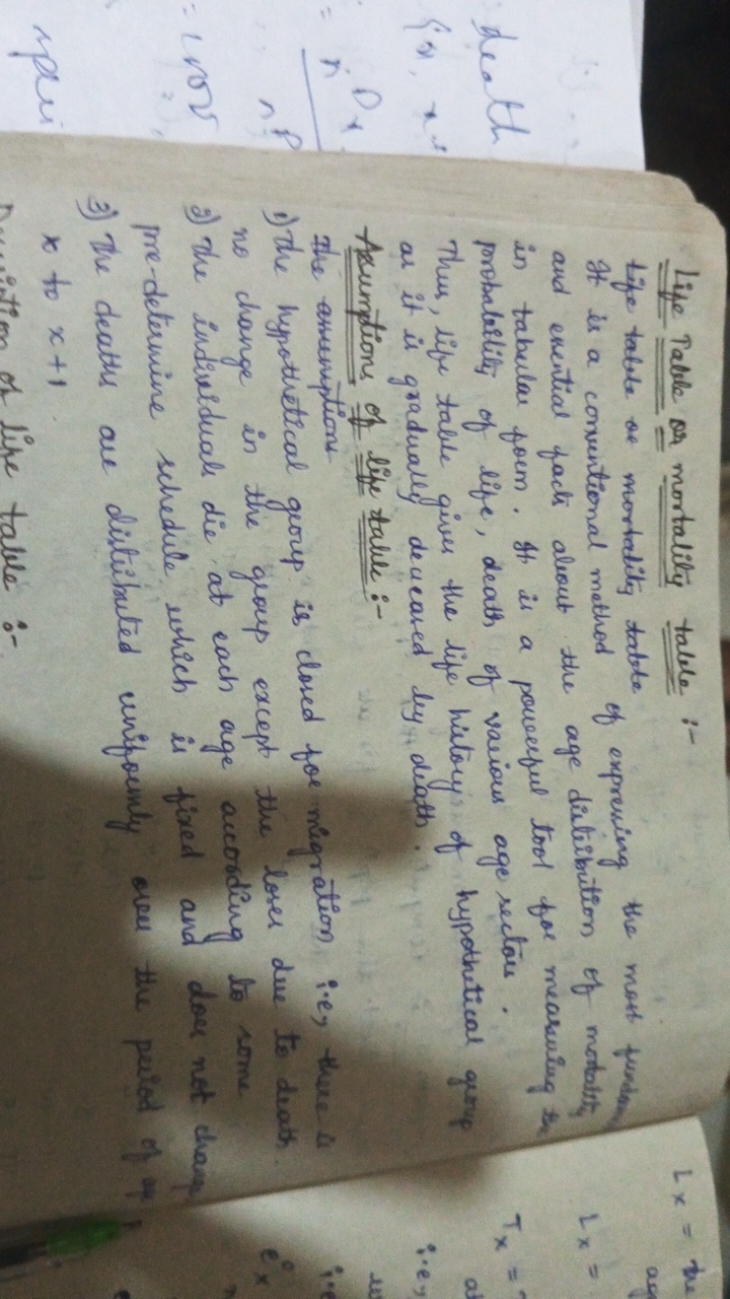 death
Life Table or mortality table :-
Life table or mortality table
It is a conventional method of expressing the most
and essential facts about the age distribution of mortality
in tabular form. It is a powerful tool for measuring the
probability of life, death of various age sectors.
Thus, life table gives the life history of hypothetical group
as it is gradually decreased by death.
Assumptions of life table :-
The assumptions
1) The hypothetical group is closed for migration i.e, there is
no change in the group except the loses due to death.
2) The individuals die at each age according to some
pre-determine schedule which is fixed and does not change
3) The deaths are distributed uniformly over the period of
x to x+1.
of life table :-
Lx = the
Lx =
Tx =
i.e,